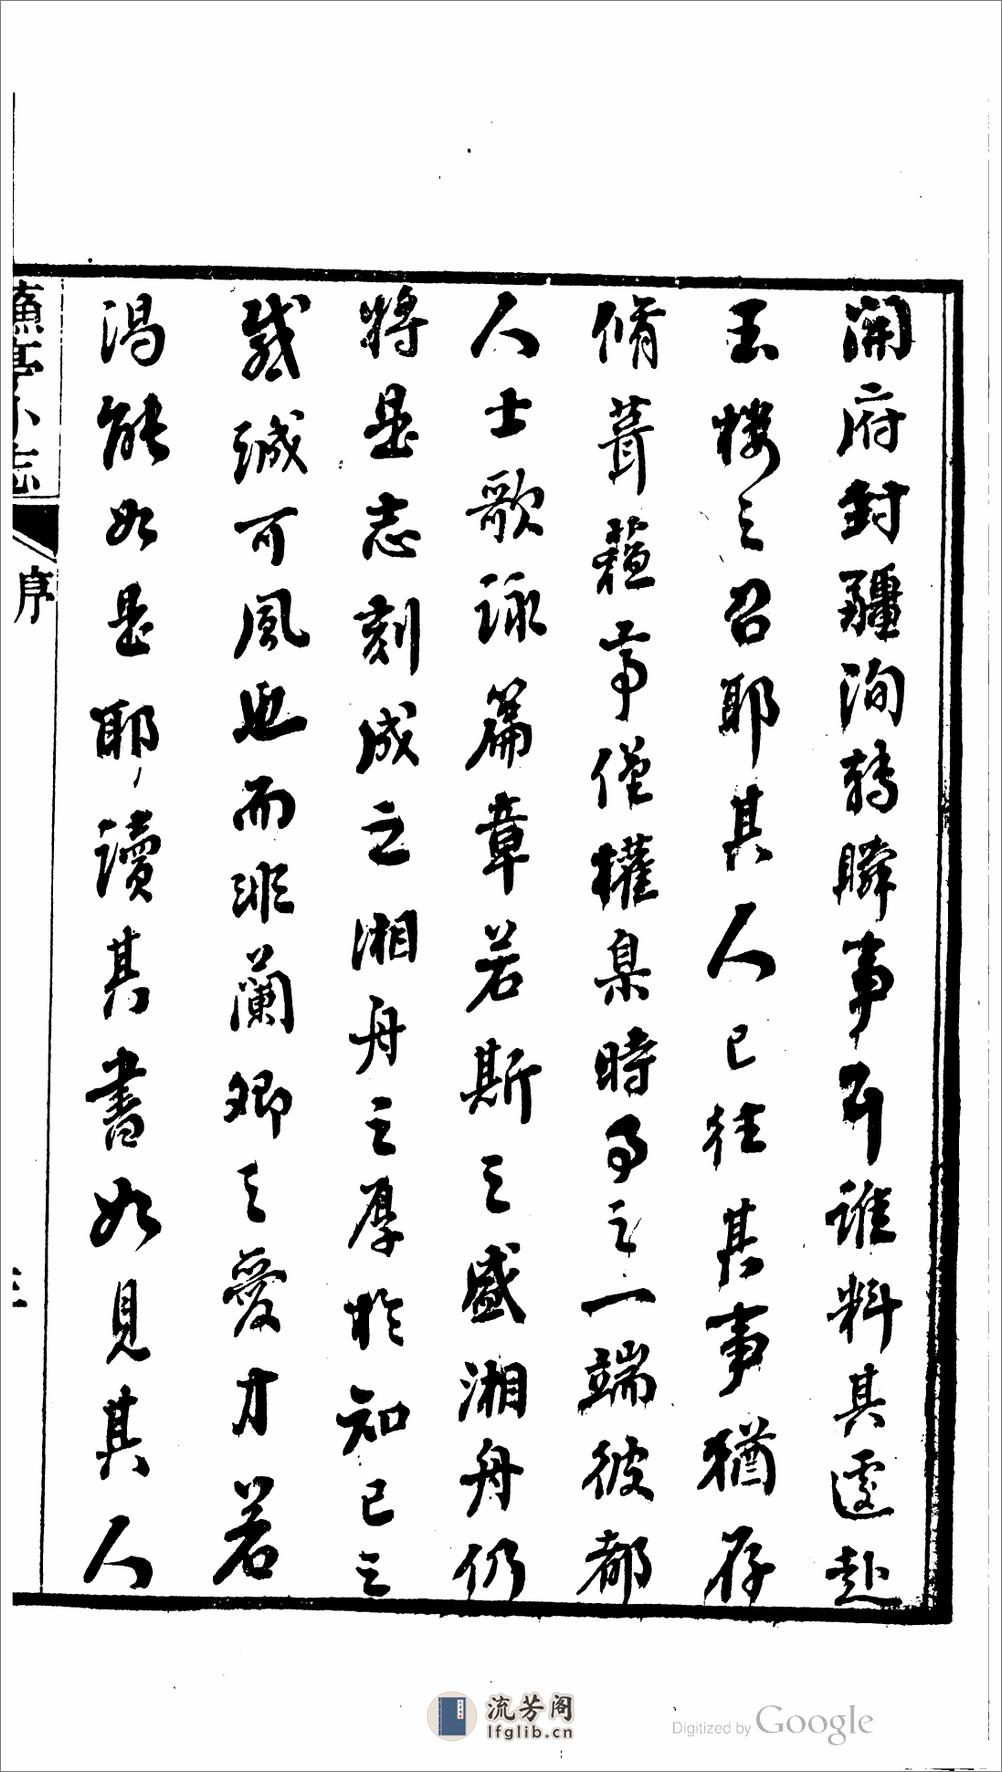 開府封疆洵轉瞬事耳誰料其遽赴
玉樓之召耶其人已往其事猶存
脩葺蘓亭僅權臬時事之一端彼都
人士歌詠篇章若斯之盛湘舟仍
將是志刻成之湘舟之厚於知己之
誠可風也而非蘭卿之愛才若
渴能如是耶讀其書如見其人
亭小志
序
三
流芳阁
lfglib.cn
Digitized by Google